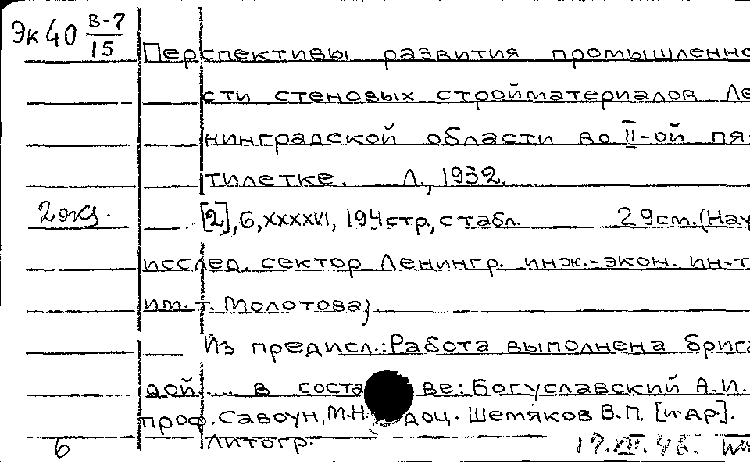 Эк 40 В-7/15
Перспективы развития промышленно
сти стеновых стройматериалов Ле
нинградской области во II-ой пя
тилетке. Л., 1932.
2 экз. [2], 6, XXXXVI, 194 стр, с табл. 29см. (Науч
исслед. сектор Ленингр. инж.-экон. ин-т
им. т. Молотова)
Из предисл.: Работа выполнена брига
дой ... в соста ве: Богуславский А.И.
проф. Савоун, М.Н. доц. Шемяков В.П. [и др].
6 Литогр. 48.